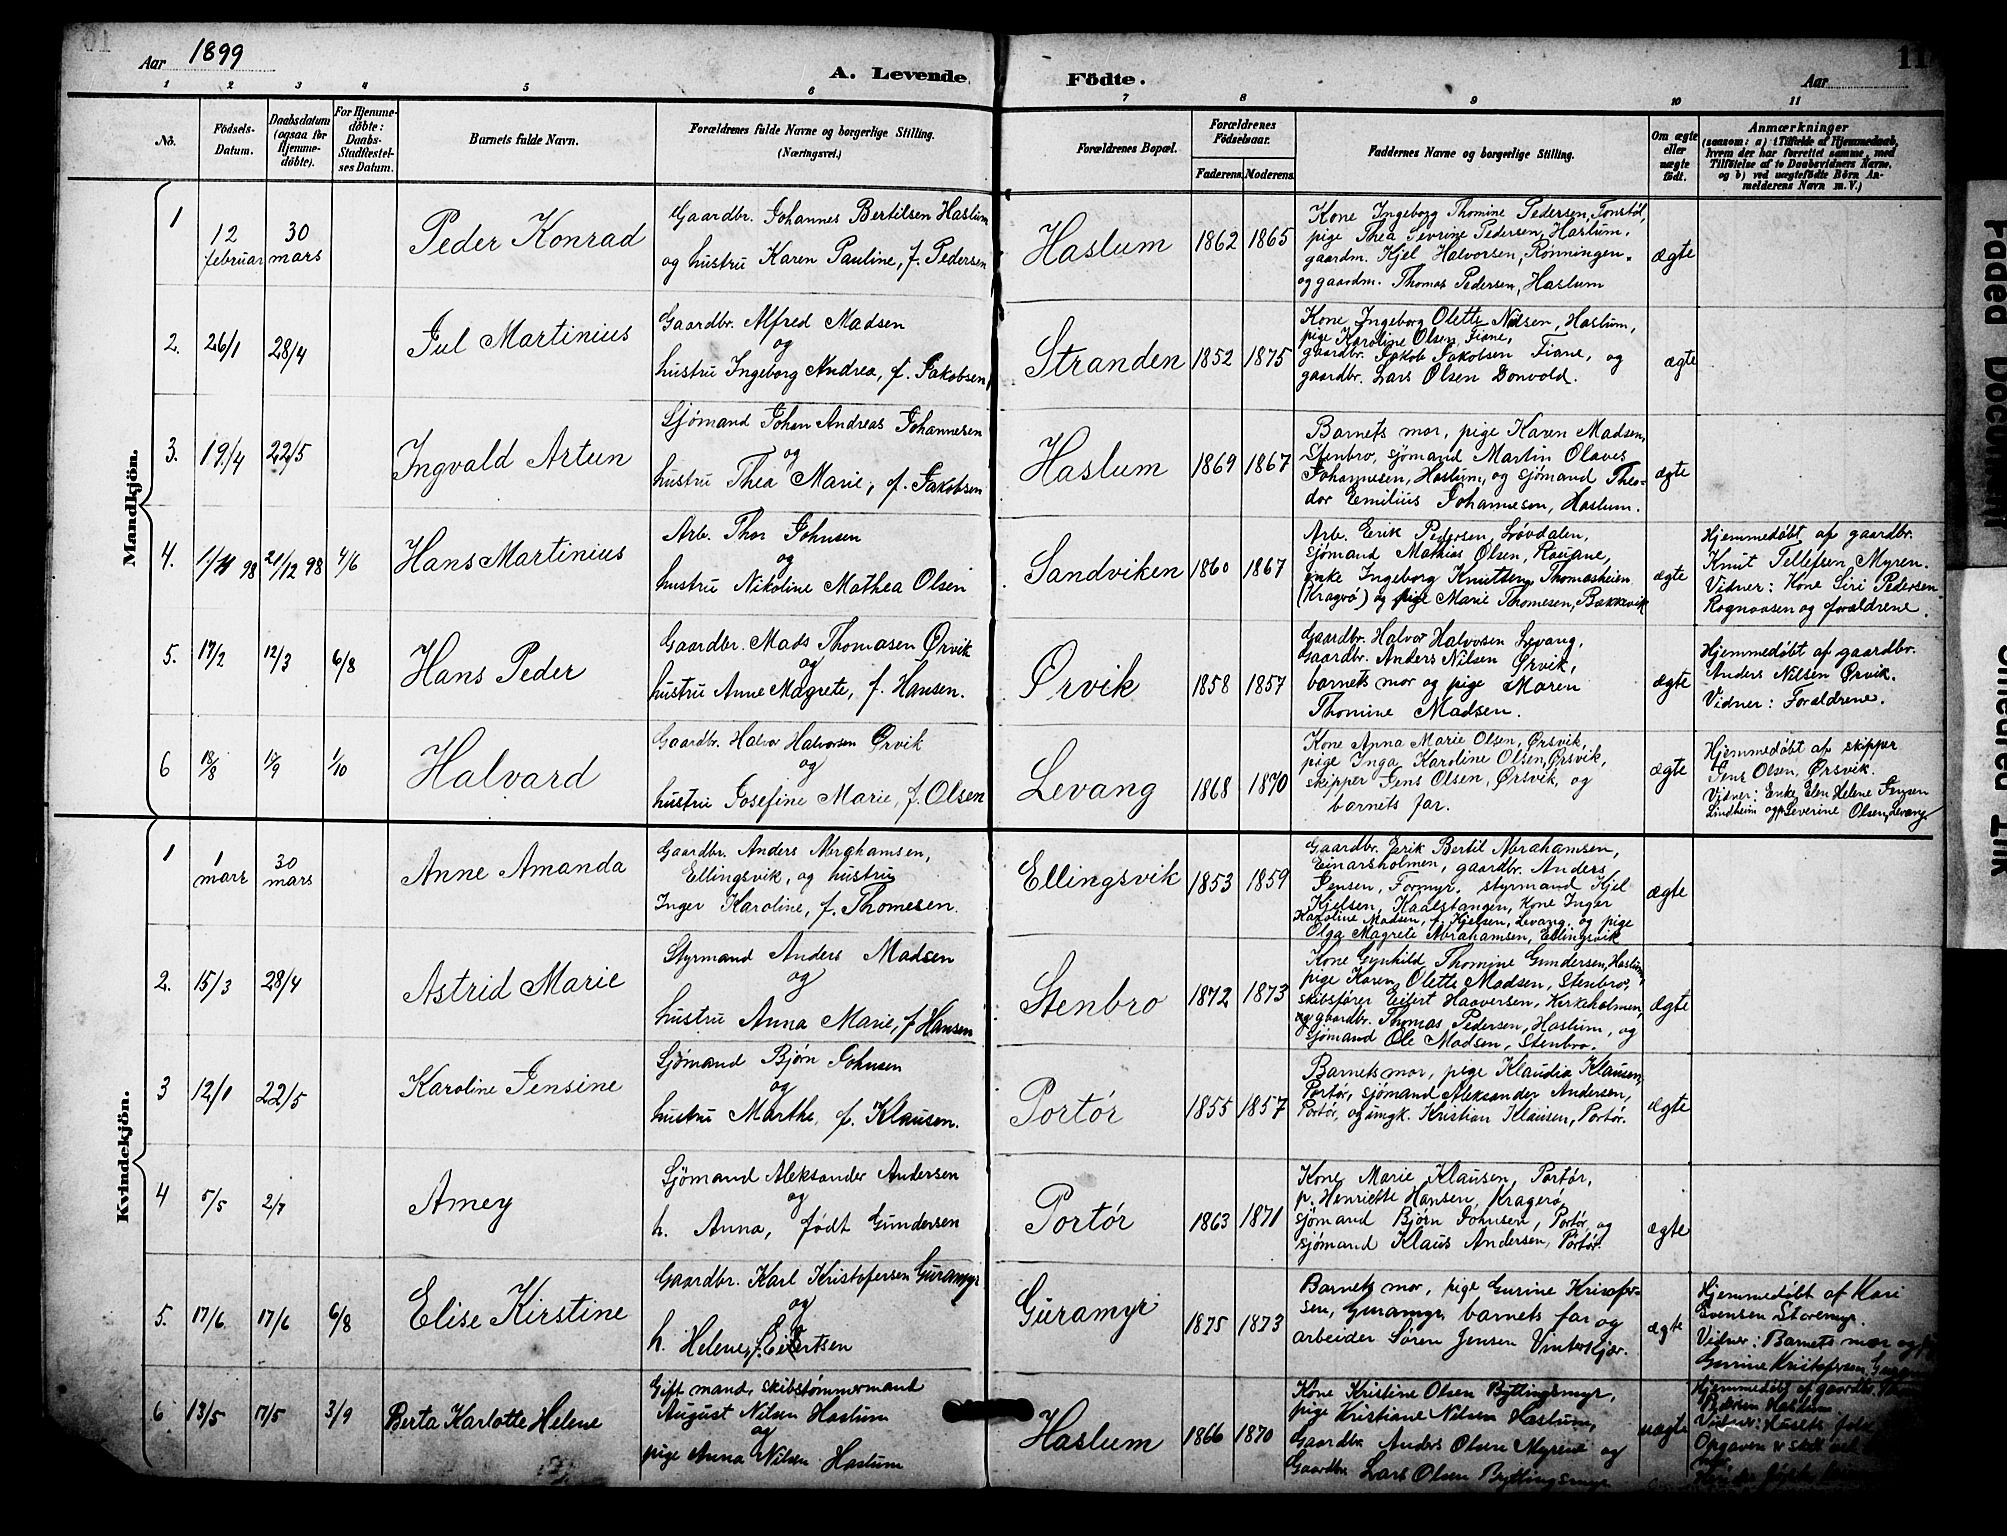 Aar 1899
A. Levende Födte.
Aar
11
1 2 3 4 5 6 7 8 9 10 11
No.
Födsels-Datum.
Daabsdatum (ogsaa for Hjemme-döbte).
For Hjemme-döbte: Daabs-Stadfæstel-ses Datum.
Barnets fulde Navn.
Forældrenes fulde Navne og borgerlige Stilling. (Næringsvei.)
Forældrenes Bopæl.
Forældrenes Födselsaar.
Faderens. Moderens.
Faddernes Navne og borgerlige Stilling.
Om ægte eller uægte födt.
Anmærkninger
(saasom: a) i Tilfælde af Hjemmedaab, hvem der har forrettet samme, med Tilföielse af to Daabsvidners Navne, og b) ved uægtefödte Börn An-melderens Navn m. V.)
Mandkjön.
1
12 februar
30 mars
Peder Konrad
Gaardbr. Johannes Bertilsen Haslum
og hustru Karen Pauline, f. Pedersen
Haslum
1862 1865
Kone Ingeborg Thomine Pedersen, Tonstøl,
pige Thea Sevrine Pedersen, Haslum,
gaardm. Kjel Halvorsen, Rønningen
og gaardm. Thomas Pedersen, Haslum
ægte
2. 26/1 28/4
Jul Martinius
Gaardbr. Alfred Madsen
og
hustru Ingeborg Andrea, f. Jakobsen
Stranden
1852 1875
Kone Ingeborg Olette Nilsen, Haslum,
pige Karoline Olsen, Fiane,
gaardbr. Jakob Jakobsen Fiane, og
gaardbr. Lars Olsen Donvold.
ægte
3. 19/4 22/5
Ingvald Artur
Sjømand Johan Andreas Johannesen
og
hustru Thea Marie, f. Jakobsen
Haslum
1869 1867
Barnets mor, pige Karen Madsen,
Stenbro, sjømand Martin Olaves
Johannesen, Haslum, og sjømand Theo-
dor Emilius Johannesen, Haslum.
ægte
4. 1/11 98 21/12 98 4/6
Hans Martinius
Arb. Thor Johnsen
og
hustru Nikoline Mathea Olsen
Sandviken
1860 1867
Arb. Erik Pedersen Løvdalen,
sjømand Mathias Olsen,
enke Ingeborg Knutteng, Thomasheien
(Kragerø) og pige Marie Thomesen, Bakkevik
ægte
Hjemmedøbt af gaardbr.
Knut Tellefsen Myren.
Vidner: Kone Siri Pedersen
og forældrene.
5. 17/2 12/3 6/8
Hans Peder
Gaardbr. Mads Thomasen Ørvik
og
hustru Anne Magrete, f. Hansen.
Ørvik
1858 1857
Gaardbr. Halvor Halvorsen Levang,
Gaardbr. Anders Nilsen Ørvik,
barnets mor og pige Maren
Thomine Madsen.
ægte
Hjemmedøbt af gaardbr.
Anders Nilsen Ørvik.
Vidner: Forældrene.
6 18/8 17/9 1/10
Halvard
Gaardbr. Halvor Halvorsen Ørvik
og
hustru Josefine Marie, f. Olsen
Levang
1868 1870
Kone Anna Marie Olsen, Ørsvik,
pige Inga Karoline Olsen, Ørsvik,
skipper Jens Olsen, Ørsvik, og
barnets far.
ægte
Hjemmedøbt af skipper
Jens Olsen, Ørsvik.
Vidner: Enke Elen Helene Jensen
Lindheim og p. Severine Olsen, Levang
Kvindekjön.
1
1 mars
30 mars
Anne Amanda
Gaardbr. Anders Abrahamsen,
Ellingsvik, og hustru
Inger Karoline, f. Thomesen.
Ellingsvik
1853 1859
Gaardbr. Erik Bertil Abrahamsen,
Einarsholmen, gaardbr. Anders
Jensen, Formyr, styrmand Kjel
Kjelsen, Kaalstangen, kone Inger
Karoline Madsen, f. Kjelsen, Levang, og pige
Olga Magrete Abrahamsen, Ellingsvik
ægte
2. 15/3 28/4
Astrid Marie
Styrmand Anders Madsen
og
hustru Anna Marie, f. Hansen
Stenbro
1872 1873
Kone Gunhild Thomine Gundersen, Haslum,
pige Karen Olette Madsen, Stenbro,
skibsfører Eilert Haaversen, Kirkeholmen,
gaardbr. Thomas Pedersen, Haslum, og
sjømand Ole Madsen, Stenbro.
ægte
3 12/1 22/5
Karoline Jensine
Sjømand Bjørn Johnsen
og
hustru Marthe, f. Klausen.
Portør
1855 1857
Barnets mor, pige Klaudia Klausen,
Portør, sjømand Aleksander Andersen,
Portør, og ungk. Kristian Klausen, Portør.
ægte
4 5/5 2/7
Amey
Sjømand Aleksander Andersen
og
h. Anna, født Gundersen
Portør
1863 1871
Kone Marie Klausen, Portør,
p. Henriette Hansen, Kragerø,
sjømand Bjørn Johnsen, Portør, og
sjømand Klaus Andersen, Portør.
ægte
5. 17/6 17/6 6/8
Elise Kirstine
Gaardbr. Karl Kristofersen Guramyr
og
h. Helene, f. Eilertsen
Guramyr
1875 1873
Barnets mor, pige Gurine Kristofer-
sen, Guramyr, barnets far og
arbeider Søren Jensen Vinterkjær.
ægte
Hjemmedøbt af Kari
Svensen Storemyr.
Vidner: Barnets mor og
Gurine Kristofersen,
6 13/5 17/5 3/9
Berta Karlotte Helene
Gift mand, skibstømmermand
August Nilsen Haslum
og
pige Anna Nilsen Haslum
Haslum
1866 1870
Kone Kristine Olsen Byttingsmyr,
pige Kristiane Nilsen Haslum,
Gaardbr. Anders Olsen Myrene og
Gaardbr. Lars Olsen Byttingsmyr
uægte
Hjemmedøbt af gaardbr.
Haslum
Vidner:
Opgaven
Faded Document
Smeared Ink